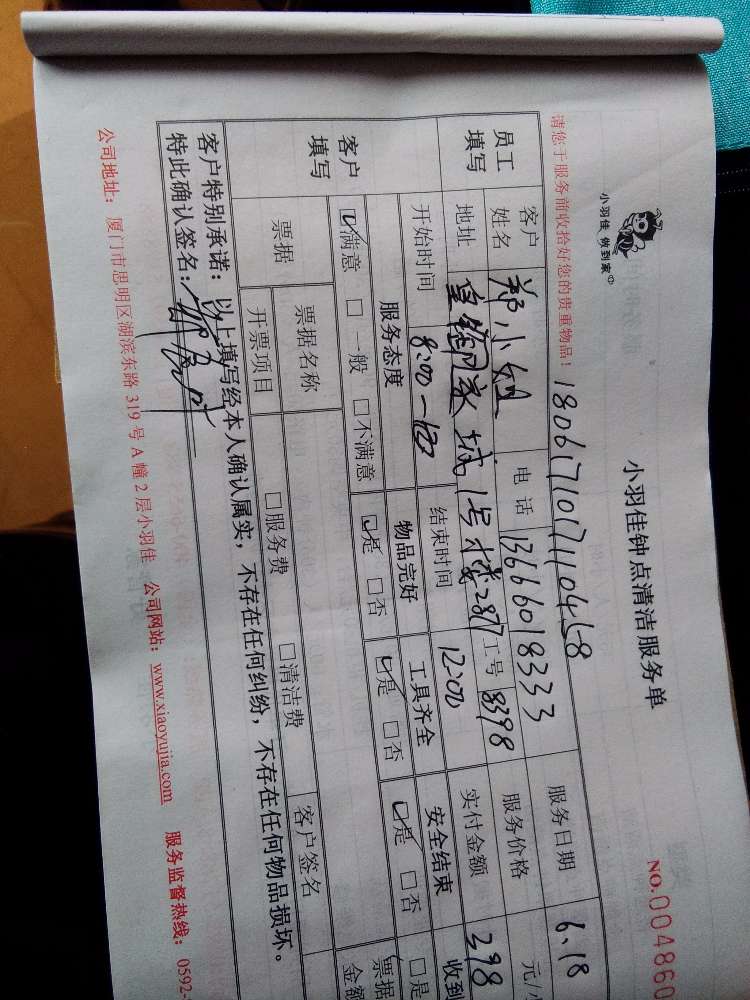 小羽佳 做到家
小羽佳钟点清洁服务单
NO.004860
请您于服务前收拾好您的贵重物品！
员工填写
客户姓名 郑小姐 电话 13666018333 服务日期 6.18
地址 1号楼2817 工号 8398 服务价格 元/
开始时间 8:00 结束时间 12:00 实付金额 298 收到
客户填写
服务态度 物品完好 工具齐全 安全结束
☑满意 □一般 □不满意 ☑是 □否 ☑是 □否 ☑是 □否 □是
票据 票据名称 客户签名 票据金额
开票项目 □服务费 □清洁费
客户特别承诺：以上填写经本人确认属实，不存在任何纠纷，不存在任何物品损坏。
特此确认签名：
公司地址：厦门市思明区湖滨东路 319 号 A 幢 2 层小羽佳 公司网站：www.xiaoyujia.com 服务监督热线：0592-